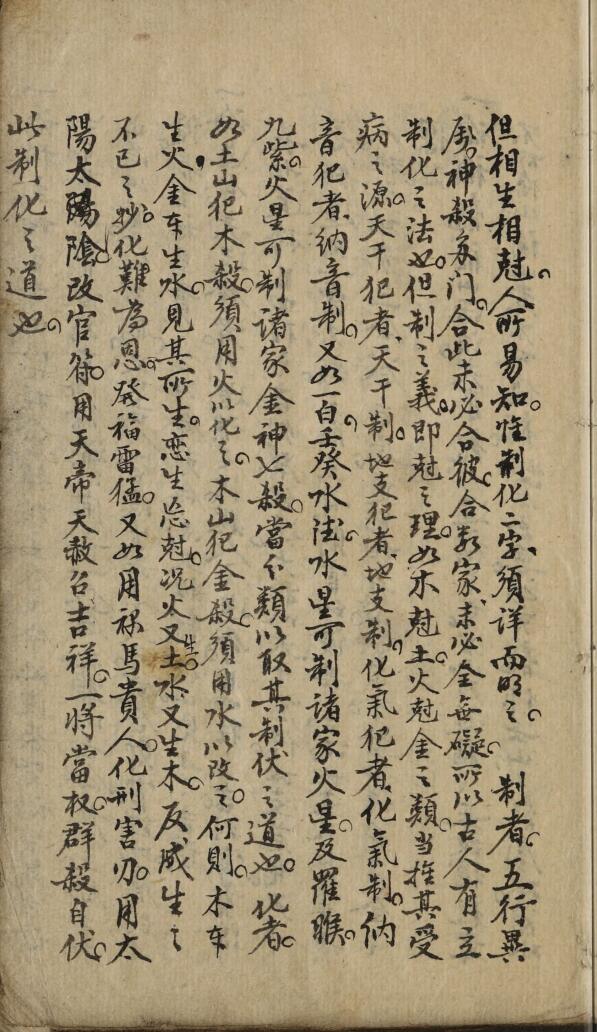 但相生相尅。人所易知。惟制化二字、須詳而明之。　制者。五行異
屬。神殺多门。合此未必合彼。合数家、未必全無礙。所以古人有立
制化之法也。但制之義。即尅之理。如木尅土。火尅金之類。当推其受
病之源。天干犯者、天干制。地支犯者、地支制。化氣犯者、化氣制。纳
音犯者、纳音制。又如一白壬癸水德。水星可制諸家火星。及羅睺。
九紫。火星可制諸家金神七殺。當分類以取其制伏之道也。化者。
如土山犯木殺。須用火以化之。木山犯金殺。須用水以改之。何則。木本
生火。金本生水。見其所生。恋生忘尅。况火又生土。水又生木。反成生生
不已之妙。化難為恩。發福雷猛。又如用禄馬貴人。化刑害刃。用太
陽太陽陰。改官符。用天帝天赦召吉祥。一將當权。群殺自伏。
此制化之道也。